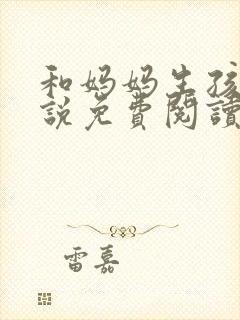 和妈妈生孩
說免費閱讀
雷嘉